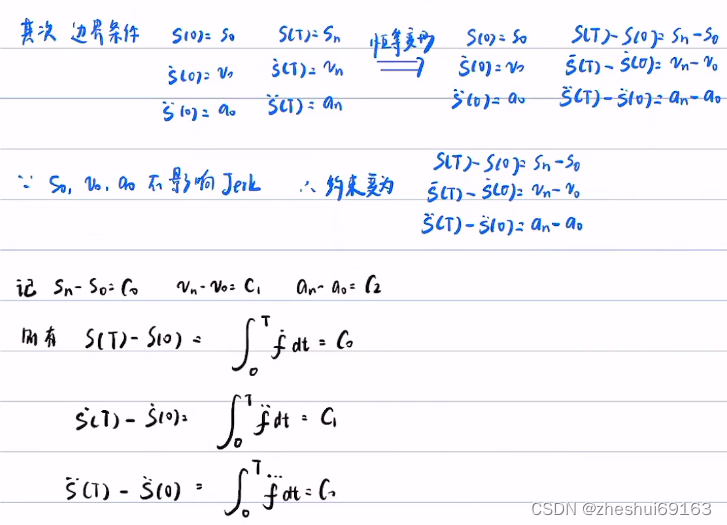 其次 边界条件 S(0)=S₀ S(T)=Sₙ 恒等变为 S(0)=S₀ S(T)-S(0)=Sₙ-S₀
Ṡ(0)=v₀ Ṡ(T)=vₙ ⟹ Ṡ(0)=v₀ Ṡ(T)-Ṡ(0)=vₙ-v₀
S̈(0)=a₀ S̈(T)=aₙ S̈(0)=a₀ S̈(T)-S̈(0)=aₙ-a₀
S(T)-S(0)=Sₙ-S₀
∵ S₀, v₀, a₀ 不影响Jerk ∴ 约束变为 Ṡ(T)-Ṡ(0)=vₙ-v₀
S̈(T)-S̈(0)=aₙ-a₀
记 Sₙ-S₀=C₀ vₙ-v₀=C₁ aₙ-a₀=C₂
则有 S(T)-S(0)= ∫₀ᵀ ḟ dt = C₀
Ṡ(T)-Ṡ(0)= ∫₀ᵀ f̈ dt = C₁
S̈(T)-S̈(0) = ∫₀ᵀ f⃛ dt = C₂
CSDN @zheshui69163